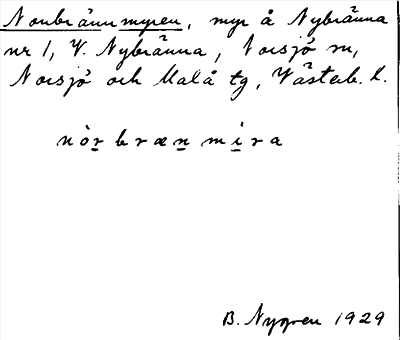 Norrbrännmyren, myr å Nybränna
nr 1, V. Nybränna, Norsjö sn,
Norsjö och Malå tg, Västerb. l.
nòr bræn mira
B. Nygren 1929